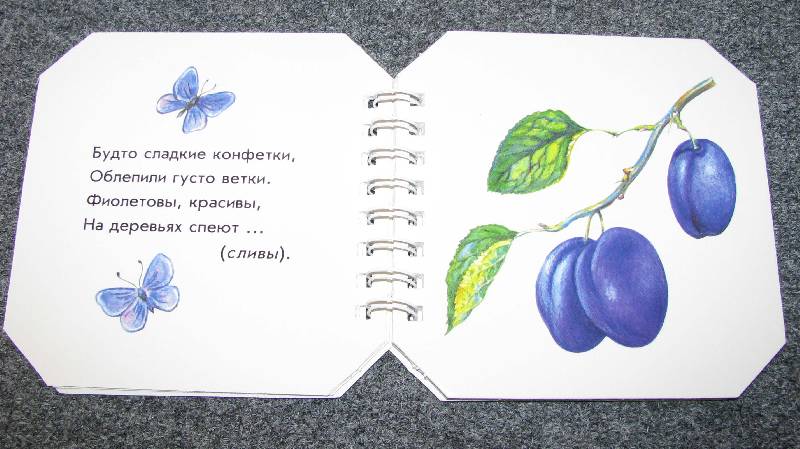 Будто сладкие конфетки,
Облепили густо ветки.
Фиолетовы, красивы,
На деревьях спеют ...
(сливы).